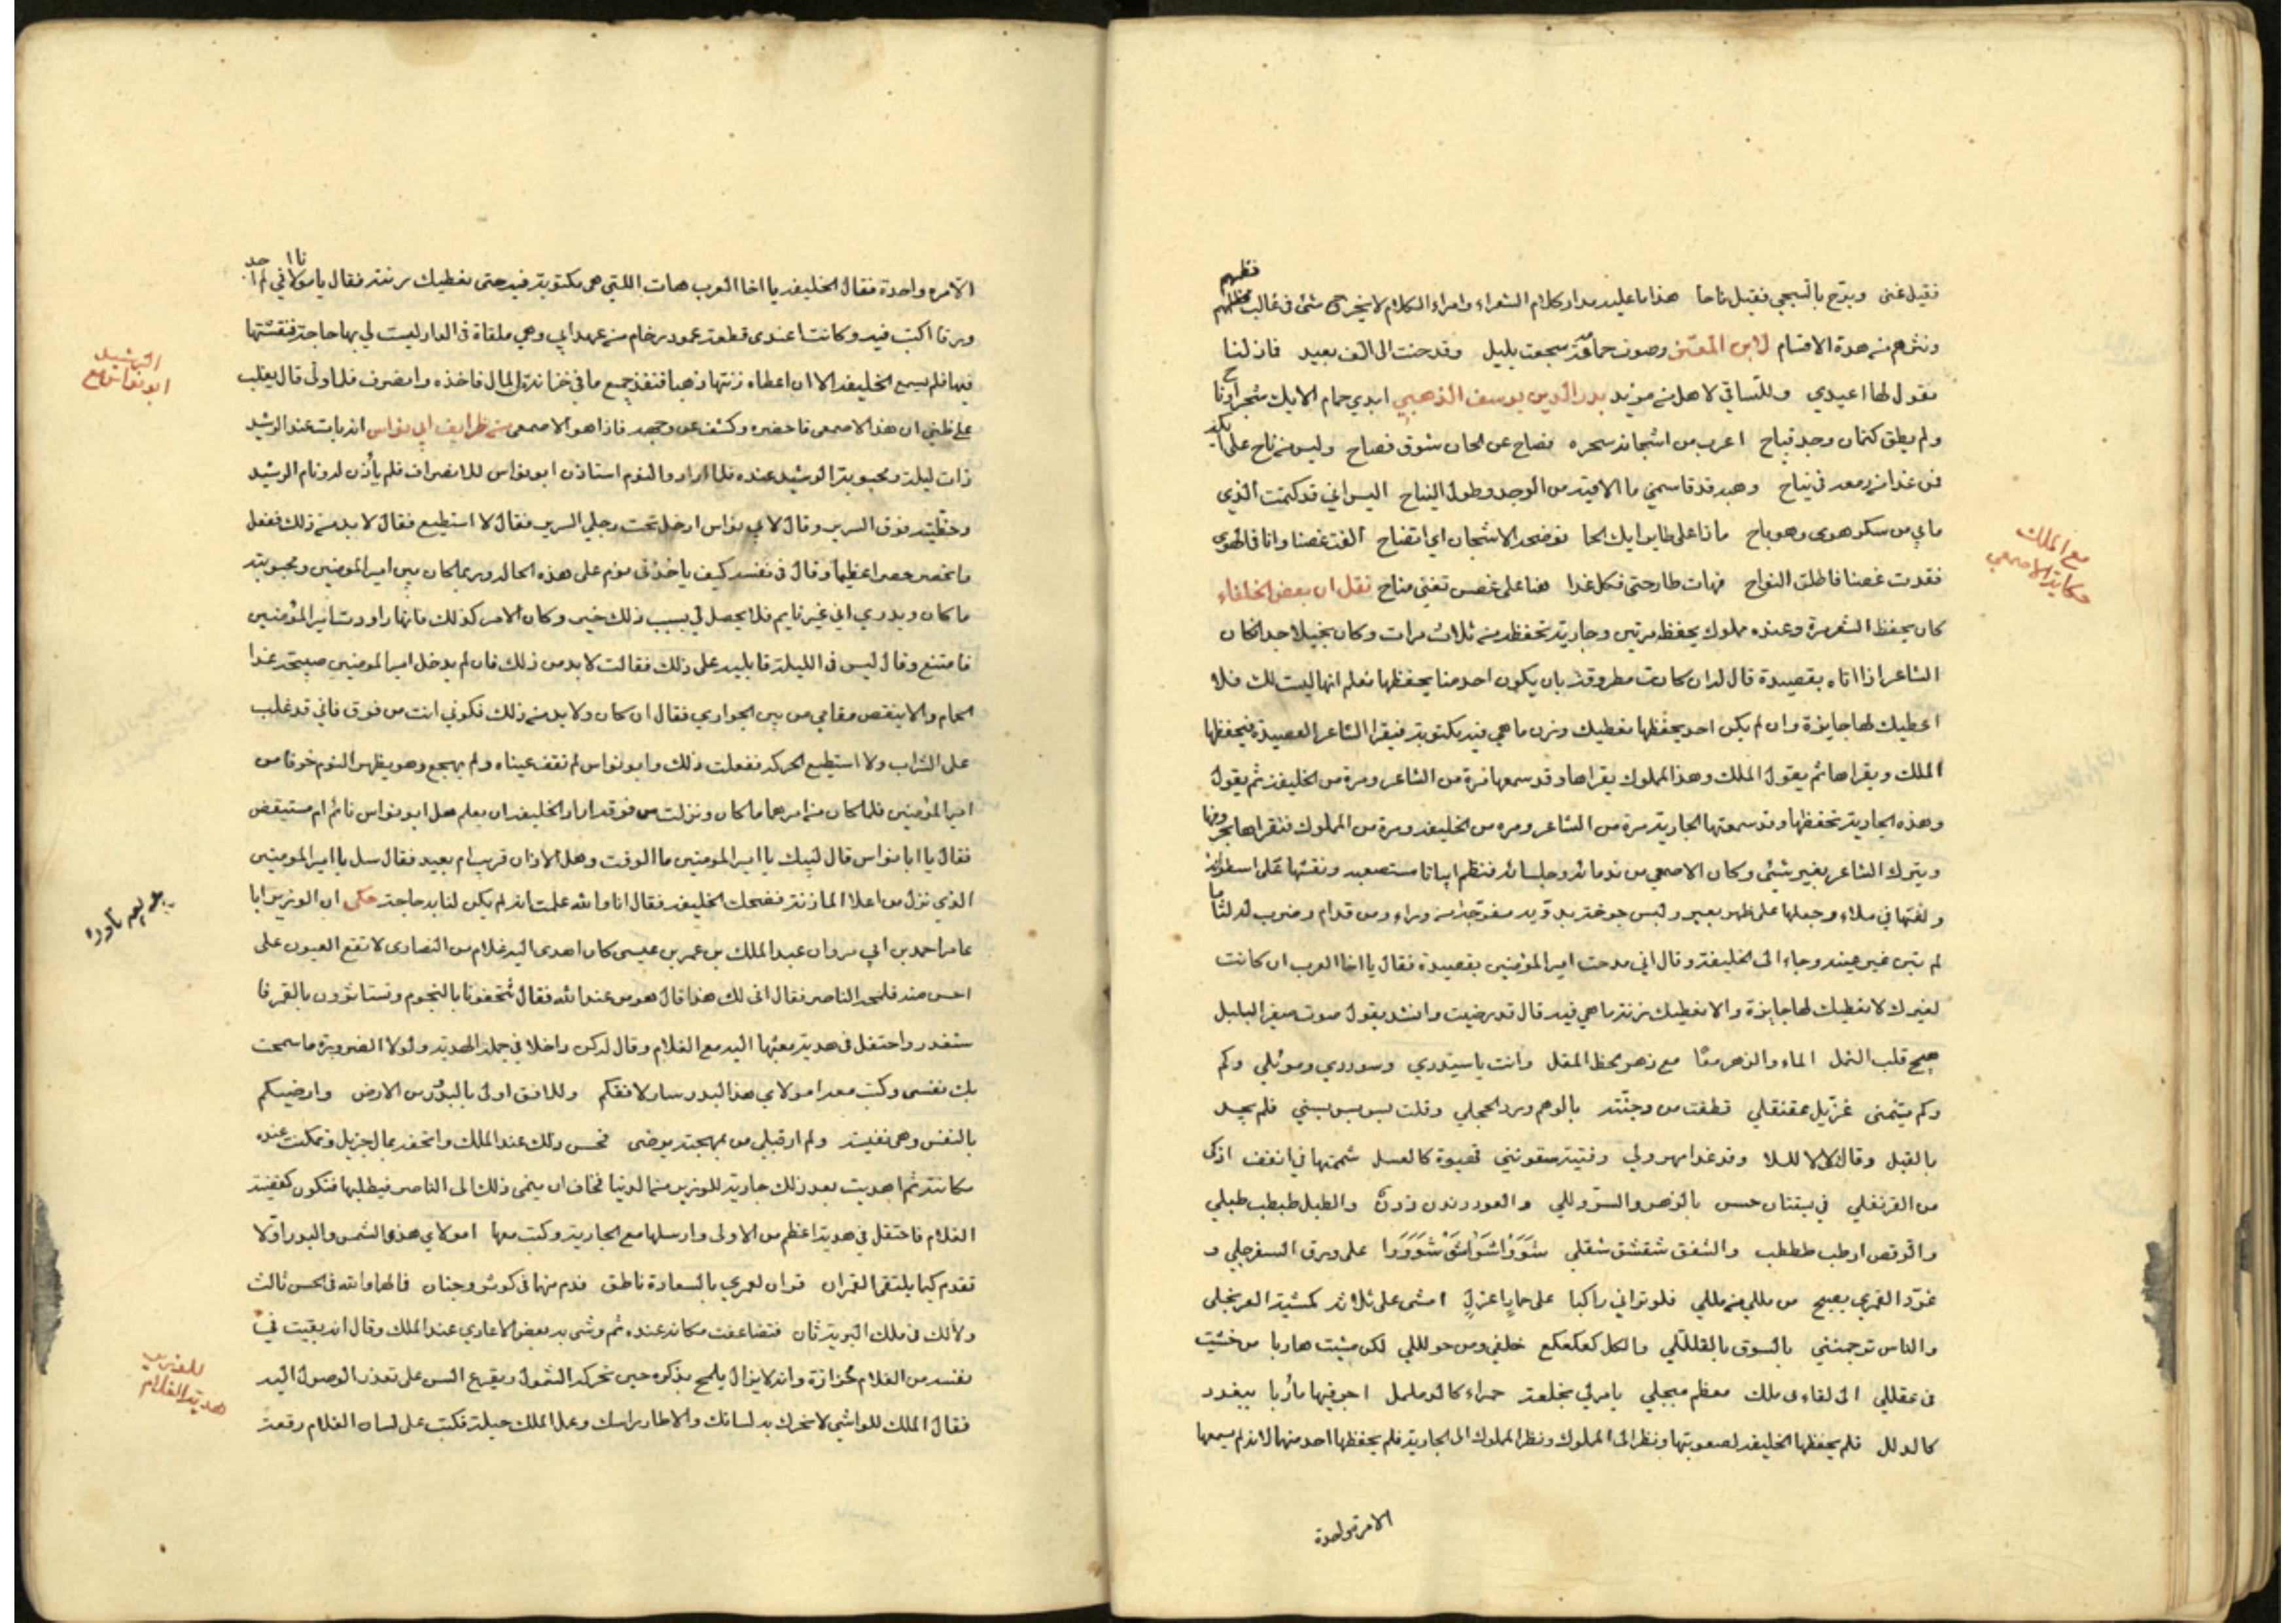 فقيل غنى وبدّح بالشجي فقيل ناحا هذا ما عليه مدار كلام الشعراء وامراء الكلام لا يخرج شئ في غالب نظمهم
ونثرهم من هذه الاقسام لابن المعتز وصوت حمامة سجعت بليل وقد حنت الى الف بعيد فان لنا
نقول لها اعيدي وللساني لا هل من مزيد بدر الدين يوسف الذهبي ابدي حمام الايك شجرا وناح
ولم يطق كتمان وجد فباح اعرب من اشجانه سحره فصاح عن الحان شوق فصاح وليس من ناح على
فمن غدا من دمعه في نياح وهبه قد قاسمني ما لاقيته من الوجد وطول النياح اليس اني قد كتمت الذي
مابي من سكر هوى وهو باح ماذا على طاير ايك الحما نوضحه الاشجان اي اتضاح الفت غصنا وانا في الهوى
فقدت غصنا فاطلت النواح فهات طارحتي فكل غدا هنا على غصن تغني مناح نقل ان بعض الخلفاء
كان يحفظ الشعر مرة وعنده مملوك يحفظه مرتين وجارية تحفظه من ثلاث مرات وكان بخيلا جدا كان
الشاعر اذا اتاه بقصيدة قال له ان كانت مطروقة بان يكون احد منا يحفظها نعلم انها ليست لك فلا
اعطيك لها جايزة وان لم يكن احد يحفظها نعطيك وزن ما هي فيه مكتوبة فيقرا الشاعر القصيدة فيحفظها
الملك ويقراها ثم يقول الملك وهذا المملوك يقراها وقد سمعها مرة من الشاعر ومرة من الخليفة ثم يقول
وهذه الجارية تحفظها وقد سمعتها الجارية مرة من الشاعر ومره من الخليفه ومرة من المملوك فتقراها بحروفها
ويترك الشاعر بغير شئي وكان الاصمعي من ندمائه وجلسائه فنظم ابياتا مستصعبه ونقشها على اسطوانة
ولفها في ملاءه وجعلها على ظهر بعير ولبس جوخة بدوية مفرجة من وراء ومن قدام وضرب له لثاما
لم يتبن غير عينيه وجاء الى الخليفة وقال اني مدحت امير المؤمنين بقصيدة فقال يا اخا العرب ان كانت
لغيرك لا نعطيك لها جايزة والا نعطيك زنة ما هي فيه قال قد رضيت وانشد يقول صوت صفير البلبل
هيج قلب الثمل الماء والزهر معا مع زهو لحظ المقل وانت يا سيدي وسوددي وموئلي وكم
وكم تيمني غزيل عقنقلي قطفت من وجنته بالوهم ورد الخجل وقلت بس بس بسني فلم يجد
بالقبل وقال لا لا للا وقد غدا مهرولي وفتية سقونني قهيوة كالعسل شممتها في انفف ازكى
من القرنفلي في بستان حسن بالزهر والسرو للي والعود دندن دندن والطبل طبطب طبلي
والرقص ارطب طبطب والشقف شقشق شقلي شووا شووا شووا على ورق السفرجلي و
غرد القمري يصيح من مللي من مللي فلو تراني راكبا على حمار اعزل امشي على ثلاثة كمشية العرنجلي
والناس ترجمنني بالسوق بالقلللي والكل كعكعكع خلفي ومن حو لللي لكن مشيت هاربا من خشيت
في عقللي الى لقاء ى ملك معظم مبجلي يامر لي بخلعة حمراء كالدململ اجر فيها ماربا ببغدد
كالدلل فلم يحفظها الخليفه لصعوبتها ونظر الى المملوك ونظر المملوك الى الجارية فلم يحفظها احد منها لانه لم يسمعها
الامرة واحدة
مع الملك
حكاية الاصمعي
الامره واحدة فقال الخليفه يا اخا العرب هات اللتي هي مكتوبة فيه حتى نعطيك زنته فقال يا مولاي لم اجد
ورقا اكتب فيه وكانت عندي قطعة عمود رخام من عهد ابي وهي ملقاة في الدار ليست لي بها حاجة فنقشتها
فيها فلم يسع الخليفه الا ان اعطاه زنتها ذهبا فنفذ جميع ما في خزانة المال فاخذه وانصرف فلما ولى قال يغلب
على ظني ان هذا الاصمعي فاحضره وكشف عن وجهه فاذا هو الاصمعي من ظرايف ابي نواس انه بات عند الرشيد
ذات ليلة ومحبوبة الرشيد عنده فلما ارادوا النوم استاذن ابو نواس للانصراف فلم يأذن له ونام الرشيد
وحظيته فوق السرير وقال لابي نواس ادخل تحت رجلي السرير فقال لا استطيع فقال لا بد من ذلك ففعل
فانحصر حصرا عظيما وقال في نفسه كيف ياخذني نوم على هذه الحاله وربما كان بين امير المومنين ومحبوبته
ما كان ويدري اني غير نايم فلا يحصل لي بسبب ذلك خير وكان الامر كذلك فانها راودت امير المؤمنين
فامتنع وقال ليس في الليلة قابليه على ذلك فقالت لا بد من ذلك فان لم يدخل امير المومنين صبيحة غدا
الحمام والا ينقص مقامي من بين الجواري فقال ان كان ولا بد من ذلك فكوني انت من فوق فاني قد غلب
على الشراب ولا استطيع الحركه ففعلت ذلك وابو نواس لم تقف عيناه ولم يهجع وهو يظهر النوم خوفا من
امير المؤمنين فلما كان من امرهما ما كان ونزلت من فوقه اراد الخليفه ان يعلم هل ابو نواس نائم ام مستيقض
فقال يا ابا نواس قال لبيك يا امير المومنين ما الوقت وهل الاذان قريب ام بعيد فقال سل يا امير المومنين
الذي نزل من اعلا الماذنة فضحك الخليفه فقال انا والله علمت انه لم يكن لنا به حاجة حكي ان الوزير ابا
عامر احمد بن ابي مروان عبد الملك بن عمر بن عيسى كان اهدى اليه غلام من النصارى لا تقع العيون على
احسن منه فلمحه الناصر فقال انى لك هذا قال هو من عند الله فقال تتحفونا بالنجوم وتستاثرون بالقمر فا
ستغدر واحتفل في هدية بعثها اليه مع الغلام وقال له كن داخلا في جملة الهدية ولولا الضرورة ما سمحت
بك نفسى وكتب معه امولاي هذا البدر سار لافقكم وللافق اولى بالبدور من الارض وارضيكم
بالنفس وهي نفيسة ولم ار قبلي من بمهجته يرضى فحسن ذلك عند الملك واتحفه بمال جزيل وتمكنت عنده
مكانته ثم اهديت بعد ذلك جارية للوزير من الدنيا فخاف ان ينمى ذلك الى الناصر فيطلبها فتكون كقضية
الغلام فاحتفل في هدية اعظم من الاولى وارسلها مع الجارية وكتب معها امولاي هذي الشمس والبدر اولا
تقدم كيما يلتقى القمران قران لعمري بالسعادة ناطق فدم منهما في كوثر وجنان فالهما والله في الحسن ثالث
ولا لك في ملك البرية ثان فتضاعفت مكانه عنده ثم وشي به بعض الاعادي عند الملك وقال انه بقيت في
نفسه من الغلام حزازة وانه لا يزال يلهج بذكره حين تحركه الشمول ويقرع السن على تعذر الوصول اليه
فقال الملك للواشي لا تحرك به لسانك والا طار راسك وعمل الملك حيلة فكتب على لسان الغلام رقعة
الرشيد
ابو نواس مع
للوزير
هدية الغلام